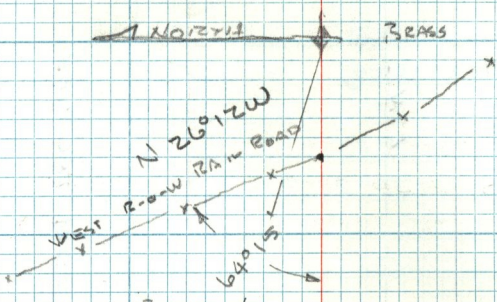 NORTH
BRASS
N 26°12W
WEST R-O-W RAIL ROAD
64°15